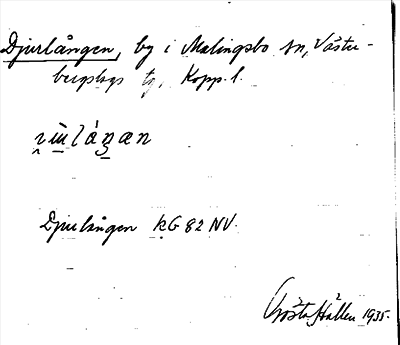 Djurlången, by i Malingsbo sn, Väster-
bergslags tg, Kopp. l.
Djurlången KG 82 NV.
Gösta Hallen 1935.